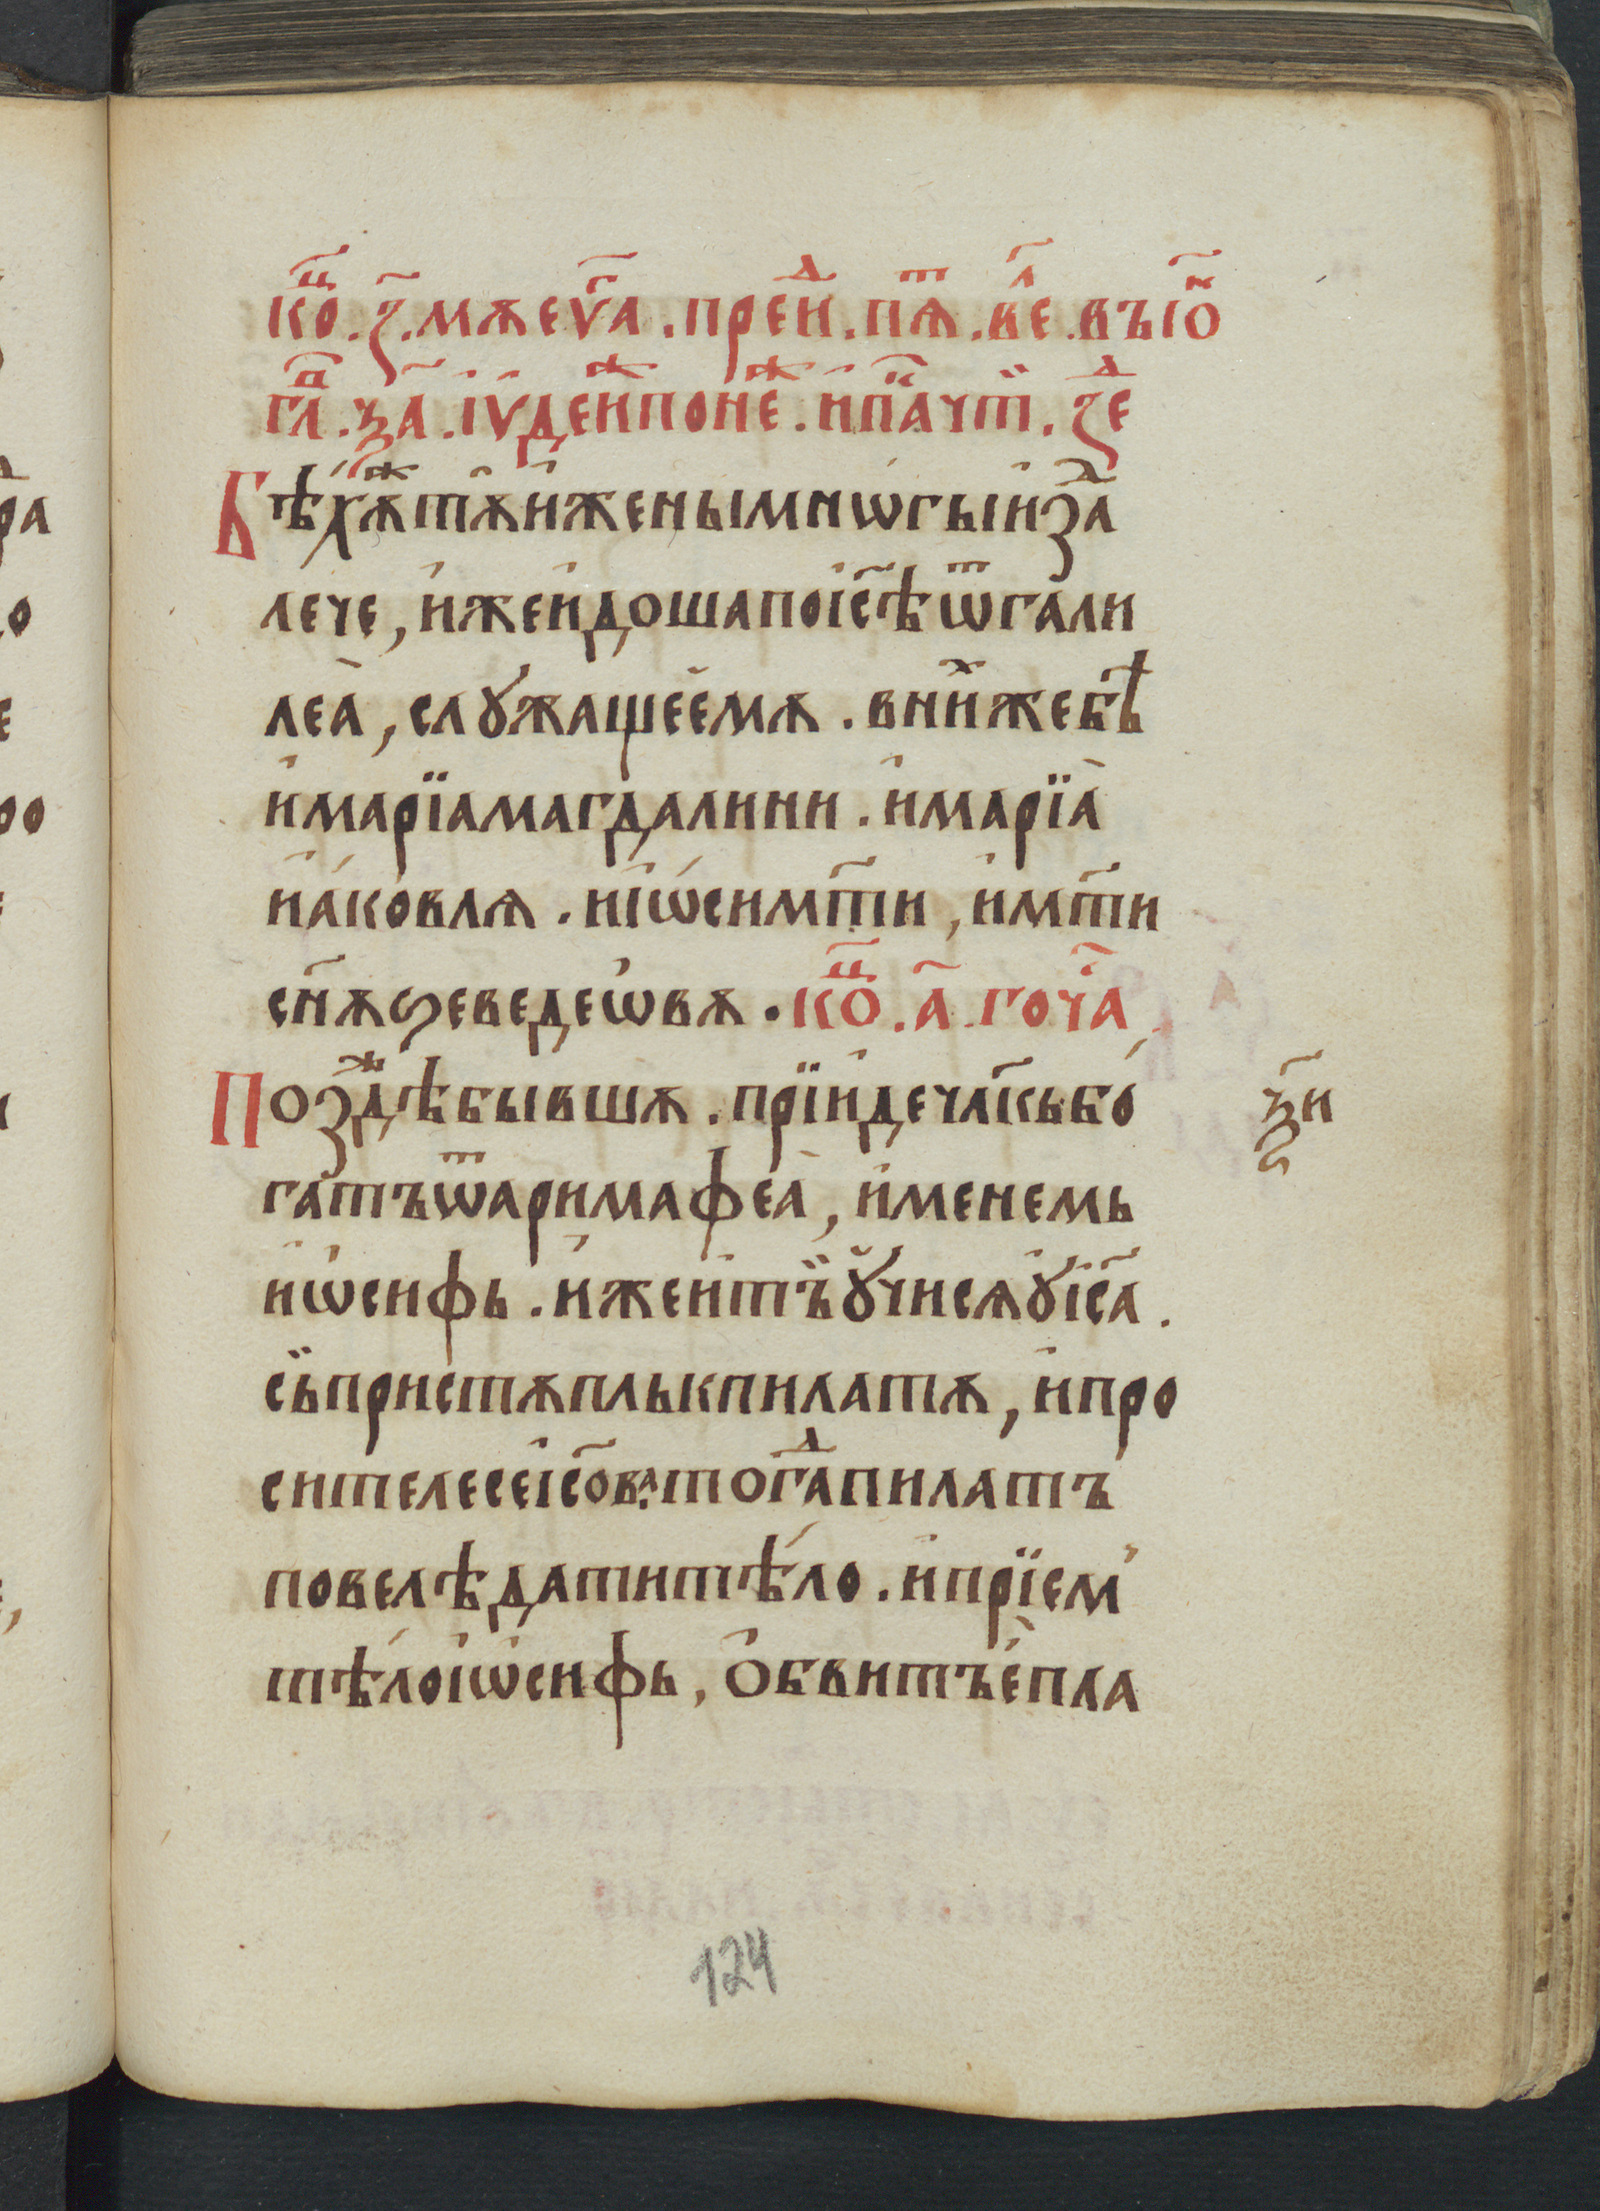 кⷰ҇ц. з҃. мѫ еѵⷢ҇а . преⷣи . пѧⷮ҇ . веⷧ҇ . въ іѡⷩ҇
гл҃ . ѯ҃а . іѵдеи понеⷤ . и пⷦ҇а чтⷮ . з҃еⷣ
Бѣхѫⷤ тѫ и жены мнѡгы и зⷣа
лече, иже идоша по і҃сѣ ѿ гали
леа, служащеемѫ . в ниⷯже бѣ
и марїа магдалини . и марїа
иаковлѧ . и іѡси мт҃и, и мт҃и
сн҃ѫ ѕеведеѡвѫ . кⷰ҇ц . а҃ гоч҃а
Позⷤдѣ бывшѫ . прїиде чл҃кь бо
гатъ ѿ аримафеа, именемь
иѡсифь . иже и тъ учисѧ у і҃са .
сь пристѫпль к пилатѫ, и про
си телесе і҃сова . тогⷣа пилатъ
повелѣ дати тѣло . и прїем
тѣло іѡсифь, обвитъ е пла
ч҃и
ѕ
124